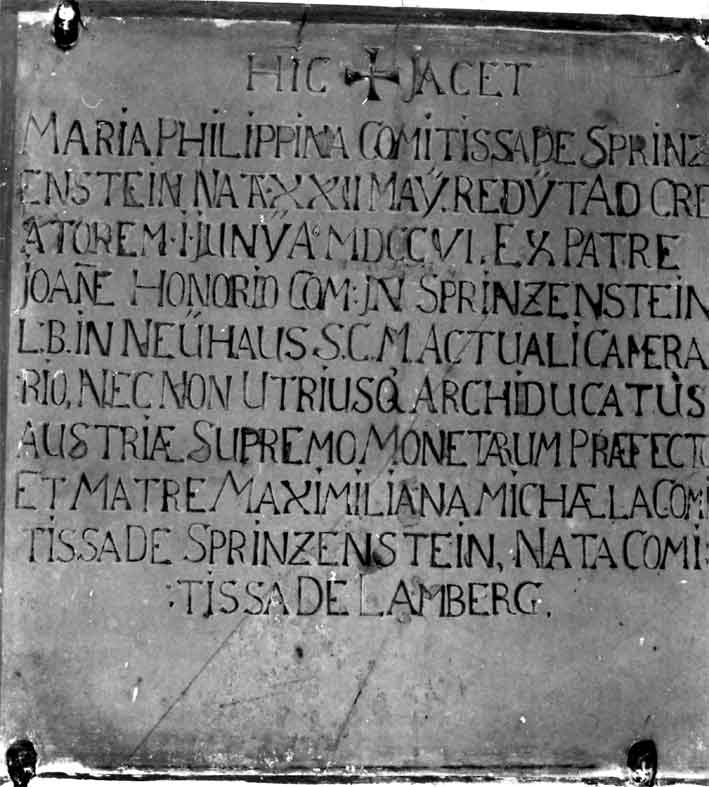 HIC ✠ JACET
MARIA PHILIPPINA COMITISSA DE SPRINZ
ENSTEIN NATA·XXII MAŸ. REDŸT AD CRE
ATOREM·I·JUNŸ A° MDCCVI. EX PATRE
JOAÑE HONORIO COM: JN SPRINZENSTEIN
L:B. IN NEÜHAUS S.C.M. ACTUALI CAMERA
:RIO, NEC NON UTRIUSQ̇ ARCHIDUCATUS
AUSTRIÆ SUPREMO MONETARUM PRÆFECTO
ET MATRE MAXIMILIANA MICHÆLA COMI
TISSA DE SPRINZENSTEIN, NATA COMI:
:TISSA DE LAMBERG.